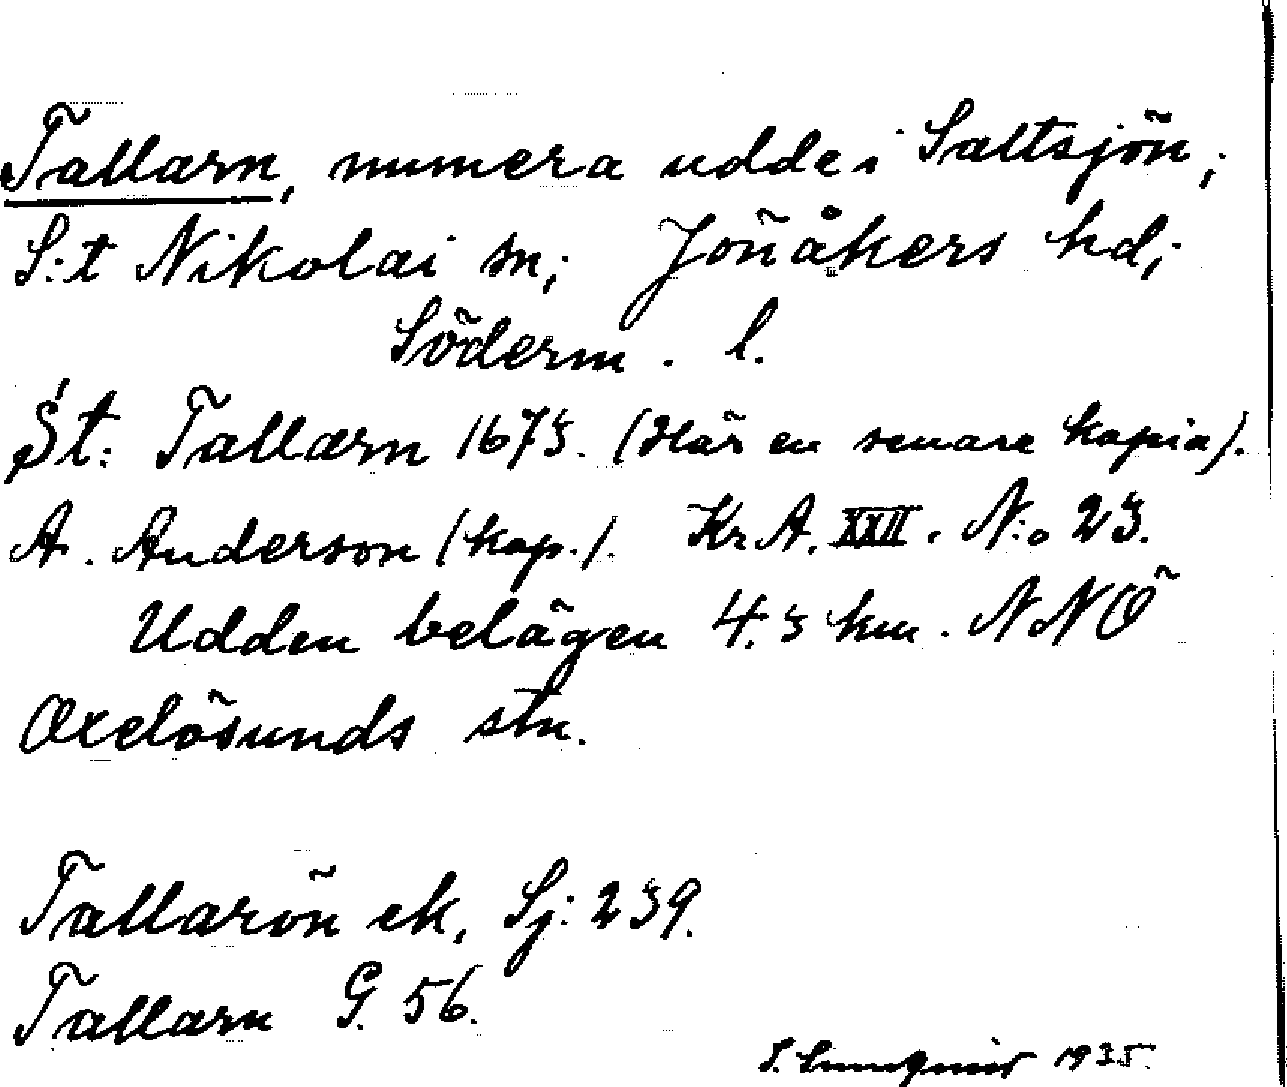 Tallarn, numera udde i Saltsjön;
S:t Nikolai sn; Jönåkers hd;
Söderm. l.
St: Tallarn 1673. (Här en senare kopia).
A. Anderson (kop.). Kr.A. XXII. N:o 23.
Udden belägen 4.3 km. NNÖ
Oxelösunds stn.
Tallarön ek. Sj: 239.
Tallarn G. 56.
1935.